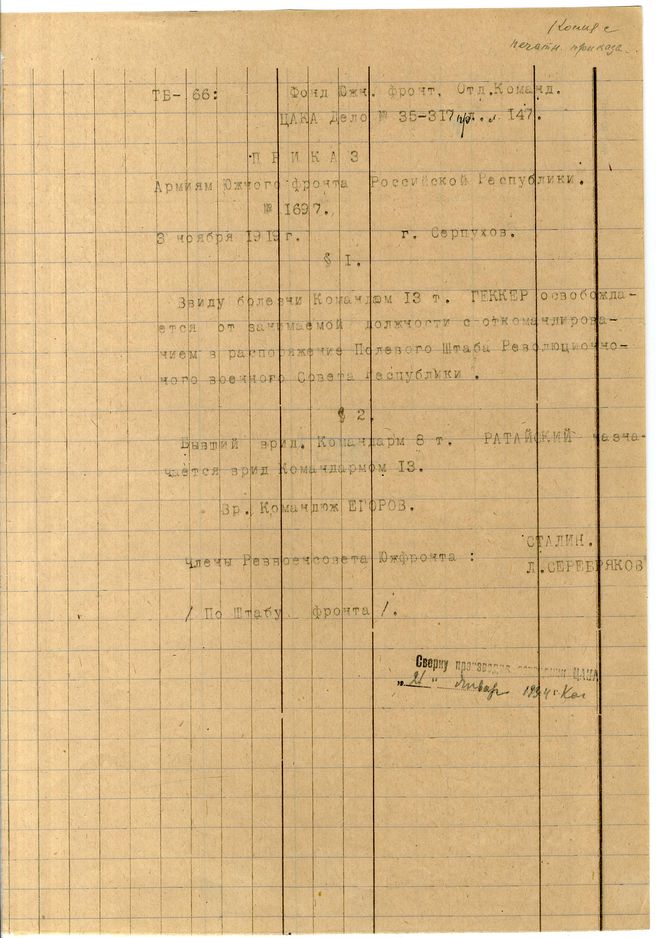 Копия с
печатн. приказа.
ТБ- 66: Фонд Южн. фронт, Отд.Команд.
ЦАКА Дело № 35-317 л. 147.
П Р И К А З
Армиям Южного фронта Российской Республики.
№ 1697.
3 ноября 1919г. г. Серпухов.
§ 1.
Ввиду болезни Командюм 13 т. ГЕККЕР освобожда-
ется от занимаемой должности с откомандирова-
нием в распоряжение Полевого Штаба Революционно-
ного военного Совета Республики .
§ 2.
Бывший врид. Командарм 8 т. РАТАЙСКИЙ назна-
чается врид Командармом 13.
Вр. Командюж ЕГОРОВ.
СТАЛИН.
Члены Реввоенсовета Южфронта :
Л.СЕРЕБРЯКОВ
/ По Штабу фронта /.
Сверку производил ЦАКА
"21" Январ